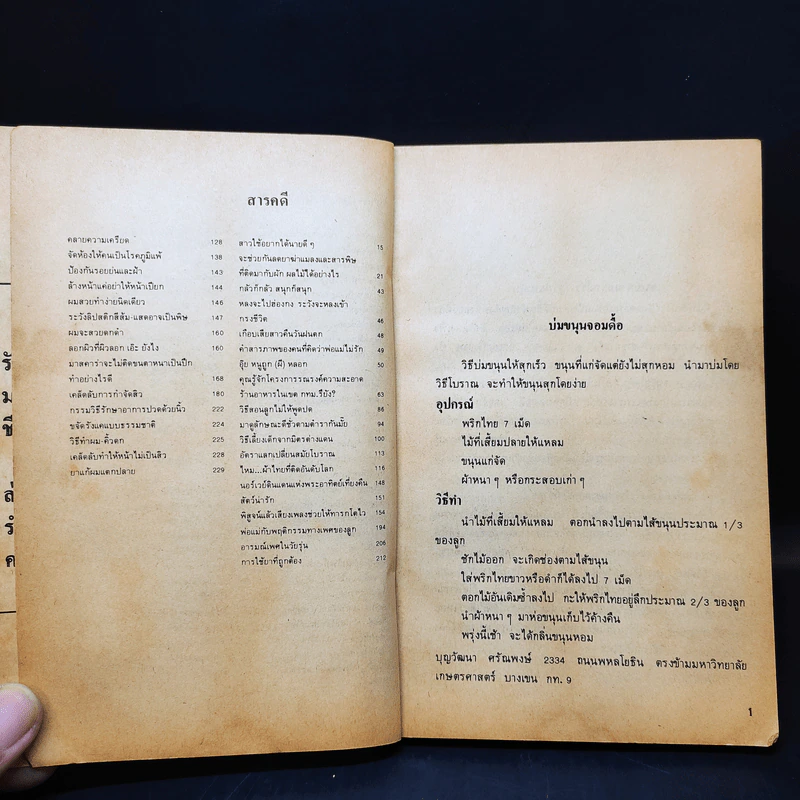 สารคดี
คลายความเครียด 126
จัดห้องให้คนเป็นโรคภูมิแพ้ 138
ป้องกันรอยย่นและฝ้า 143
ล้างหน้าแค่อย่าให้หน้าเปียก 144
ผมสวยทำง่ายนิดเดียว 146
ระวังลิปสติกสีส้ม-แสดอาจเป็นพิษ 147
ผมจะสวยดกดำ 160
ลอกผิวที่ผิวลอก เอ๊ะ ยังไง 160
มาสคาร่าจะไม่ติดขนตาหนาเป็นปึก
ทำอย่างไรดี 168
เคล็ดลับการกำจัดสิว 180
กรรมวิธีรักษาอาการปวดด้วยนิ้ว 222
ขจัดรังแคแบบธรรมชาติ 224
วิธีทำผม-คิ้วดก 225
เคล็ดลับทำให้หน้าไม่เป็นสิว 228
ยาแก้ผมแตกปลาย 229
สาวใช้อยากได้นายดี ๆ 15
จะช่วยกันลดยาฆ่าแมลงและสารพิษ
ที่ติดมากับผัก ผลไม้ได้อย่างไร 21
กลัวก็กลัว สนุกก็สนุก 43
หลงจะไปฮ่องกง ระวังจะหลงเข้า
กรงชีวิต 46
เกือบเสียสาวคืนวันฝนตก 48
คำสารภาพของคนที่คิดว่าพ่อแม่ไม่รัก 49
อุ๊ย หนูถูก (ผี) หลอก 50
คุณรู้จักโครงการรณรงค์ความสะอาด
ร้านอาหารในเขต กทม.รึยัง? 63
วิธีสอนลูกไม่ให้พูดปด 86
มาดูลักษณะดีชั่วตามตำรากันมั้ย 94
วิธีเลี้ยงเด็กจากมิตรต่างแดน 100
อัตราแลกเปลี่ยนสมัยโบราณ 113
ไหม...ผ้าไทยที่ติดอันดับโลก 116
นอร์เวย์ดินแดนแห่งพระอาทิตย์เที่ยงคืน 148
สัตว์น่ารัก 151
พิสูจน์แล้วเสียงเพลงช่วยให้ทารกโตไว 154
พ่อแม่กับพฤติกรรมทางเพศของลูก 194
อารมณ์เพศในวัยรุ่น 206
การใช้ยาที่ถูกต้อง 212
บ่มขนุนจอมดื้อ
วิธีบ่มขนุนให้สุกเร็ว ขนุนที่แก่จัดแต่ยังไม่สุกหอม นำมาบ่มโดย
วิธีโบราณ จะทำให้ขนุนสุกโดยง่าย
อุปกรณ์
พริกไทย 7 เม็ด
ไม้ที่เสี้ยมปลายให้แหลม
ขนุนแก่จัด
ผ้าหนา ๆ หรือกระสอบเก่า ๆ
วิธีทำ
นำไม้ที่เสี้ยมให้แหลม ตอกนำลงไปตามไส้ขนุนประมาณ 1/3
ของลูก
ชักไม้ออก จะเกิดช่องตามไส้ขนุน
ใส่พริกไทยขาวหรือดำก็ได้ลงไป 7 เม็ด
ตอกไม้อันเดิมซ้ำลงไป กะให้พริกไทยอยู่ลึกประมาณ 2/3 ของลูก
นำผ้าหนา ๆ มาห่อขนุนเก็บไว้ค้างคืน
พรุ่งนี้เช้า จะได้กลิ่นขนุนหอม
บุญวัฒนา ศรัณพงษ์ 2334 ถนนพหลโยธิน ตรงข้ามมหาวิทยาลัย
เกษตรศาสตร์ บางเขน กท. 9
1